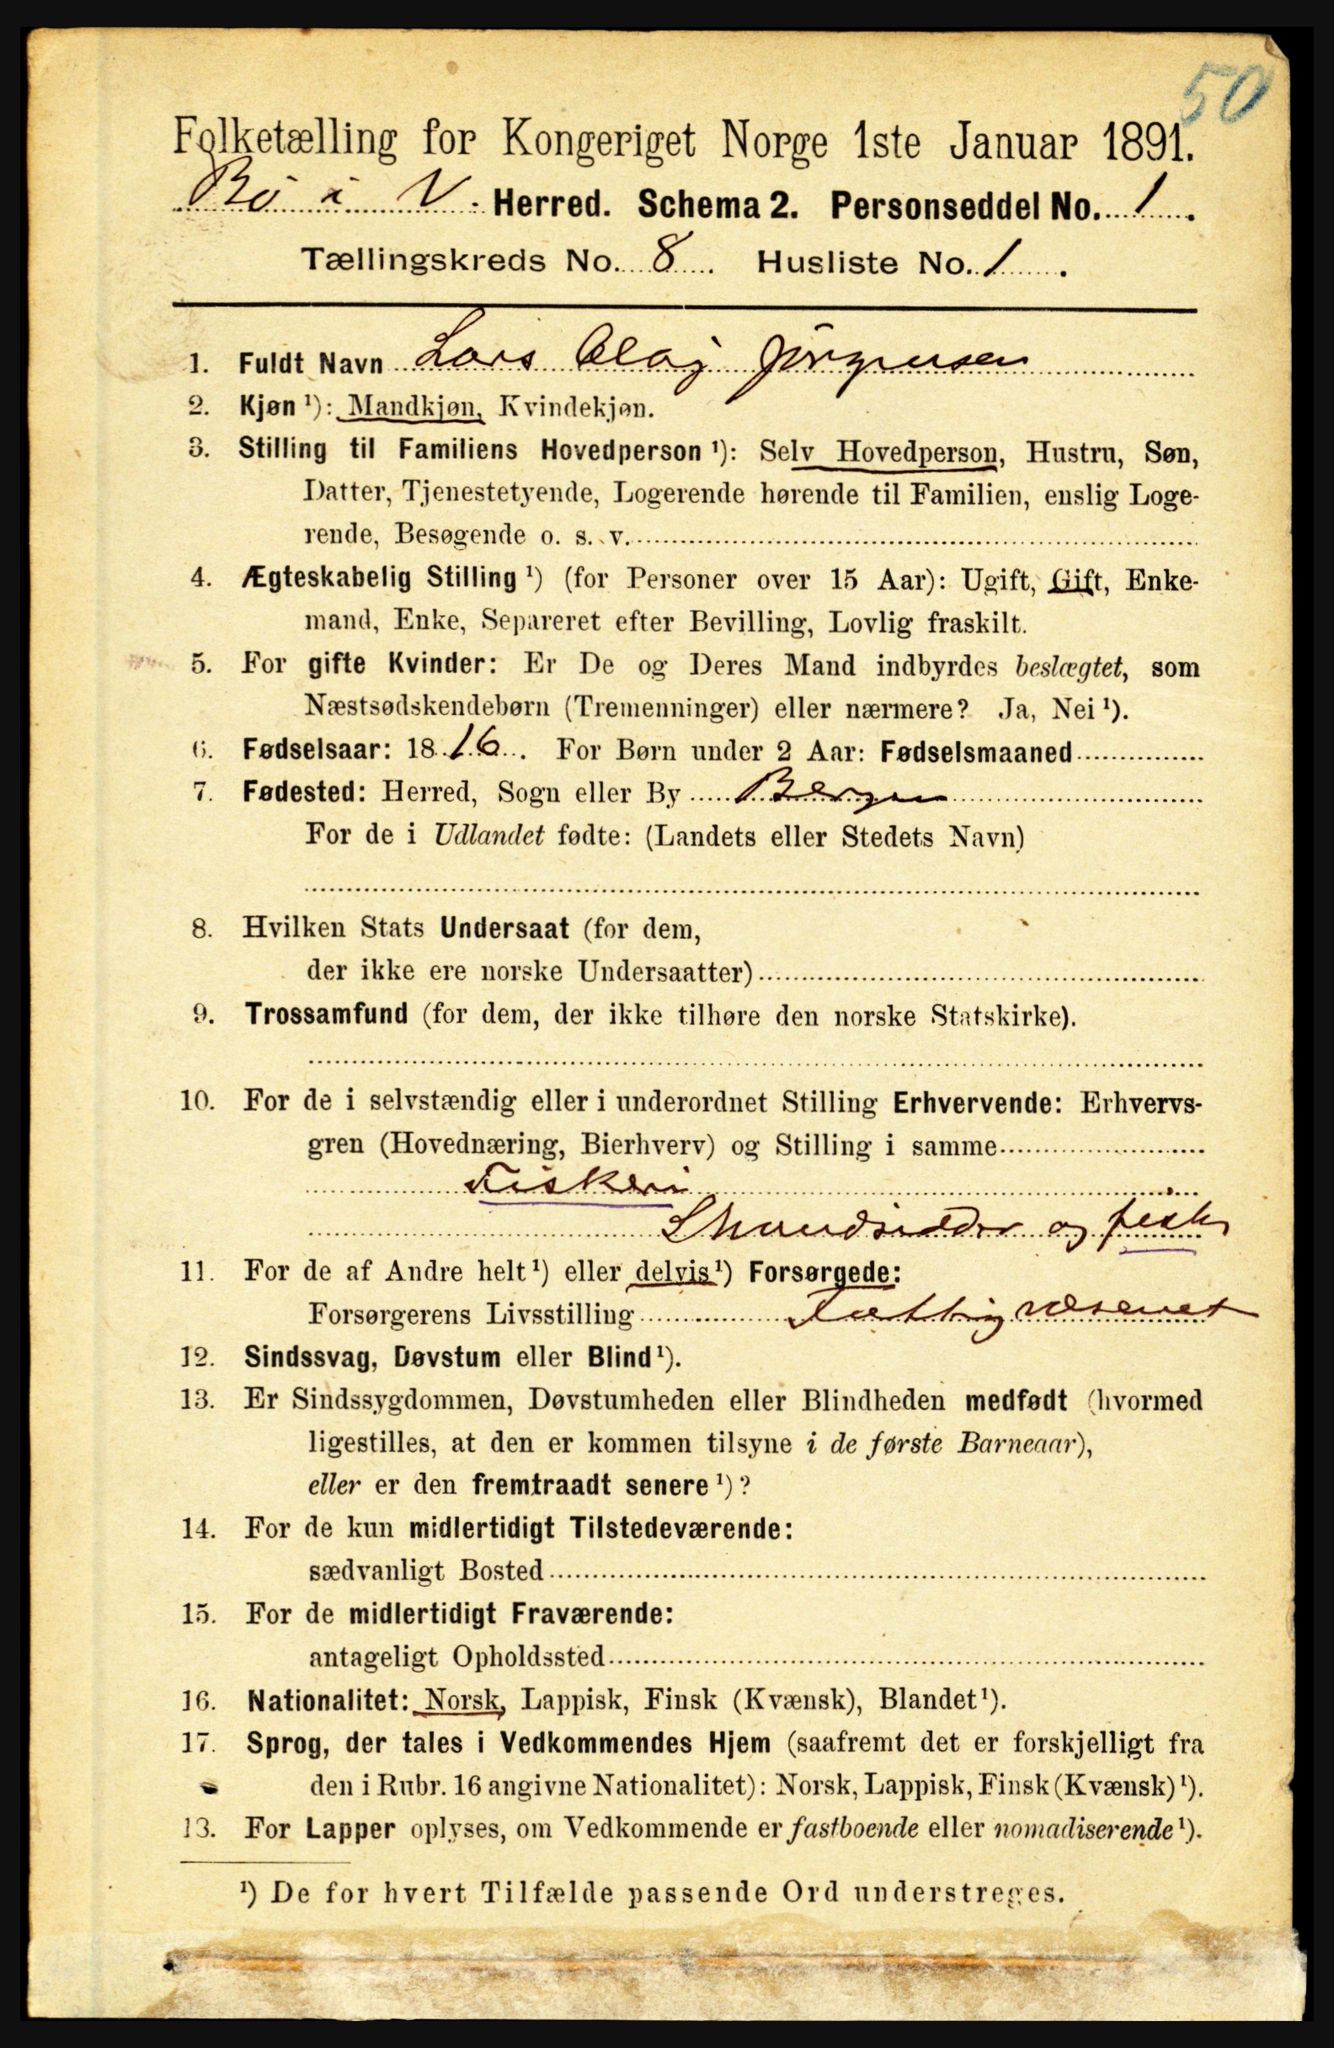 50
Folketælling for Kongeriget Norge 1ste Januar 1891.
Bö i V. Herred. Schema 2. Personseddel No. 1.
Tællingskreds No. 8. Husliste No. 1.
1. Fuldt Navn Lars Olaj Jörgensen
2. Kjøn ¹): Mandkjøn, Kvindekjøn.
3. Stilling til Familiens Hovedperson ¹): Selv Hovedperson, Hustru, Søn,
Datter, Tjenestetyende, Logerende hørende til Familien, enslig Loge-
rende, Besøgende o. s. v.
4. Ægteskabelig Stilling ¹) (for Personer over 15 Aar): Ugift, Gift, Enke-
mand, Enke, Separeret efter Bevilling, Lovlig fraskilt.
5. For gifte Kvinder: Er De og Deres Mand indbyrdes beslægtet, som
Næstsødskendebørn (Tremenninger) eller nærmere? Ja, Nei ¹).
6. Fødselsaar: 1816. For Børn under 2 Aar: Fødselsmaaned
7. Fødested: Herred, Sogn eller By Bergen
For de i Udlandet fødte: (Landets eller Stedets Navn)
8. Hvilken Stats Undersaat (for dem,
der ikke ere norske Undersaatter)
9. Trossamfund (for dem, der ikke tilhøre den norske Statskirke).
10. For de i selvstændig eller i underordnet Stilling Erhvervende: Erhvervs-
gren (Hovednæring, Bierhverv) og Stilling i samme
Fiskeri
Strandsidder og fisk
11. For de af Andre helt ¹) eller delvis ¹) Forsørgede:
Forsørgerens Livsstilling Fattigvæsenet
12. Sindssvag, Døvstum eller Blind ¹).
13. Er Sindssygdommen, Døvstumheden eller Blindheden medfødt (hvormed
ligestilles, at den er kommen tilsyne i de første Barneaar),
eller er den fremtraadt senere ¹)?
14. For de kun midlertidigt Tilstedeværende:
sædvanligt Bosted
15. For de midlertidigt Fraværende:
antageligt Opholdssted
16. Nationalitet: Norsk, Lappisk, Finsk (Kvænsk), Blandet ¹).
17. Sprog, der tales i Vedkommendes Hjem (saafremt det er forskjelligt fra
den i Rubr. 16 angivne Nationalitet): Norsk, Lappisk, Finsk (Kvænsk) ¹).
13. For Lapper oplyses, om Vedkommende er fastboende eller nomadiserende ¹).
¹) De for hvert Tilfælde passende Ord understreges.